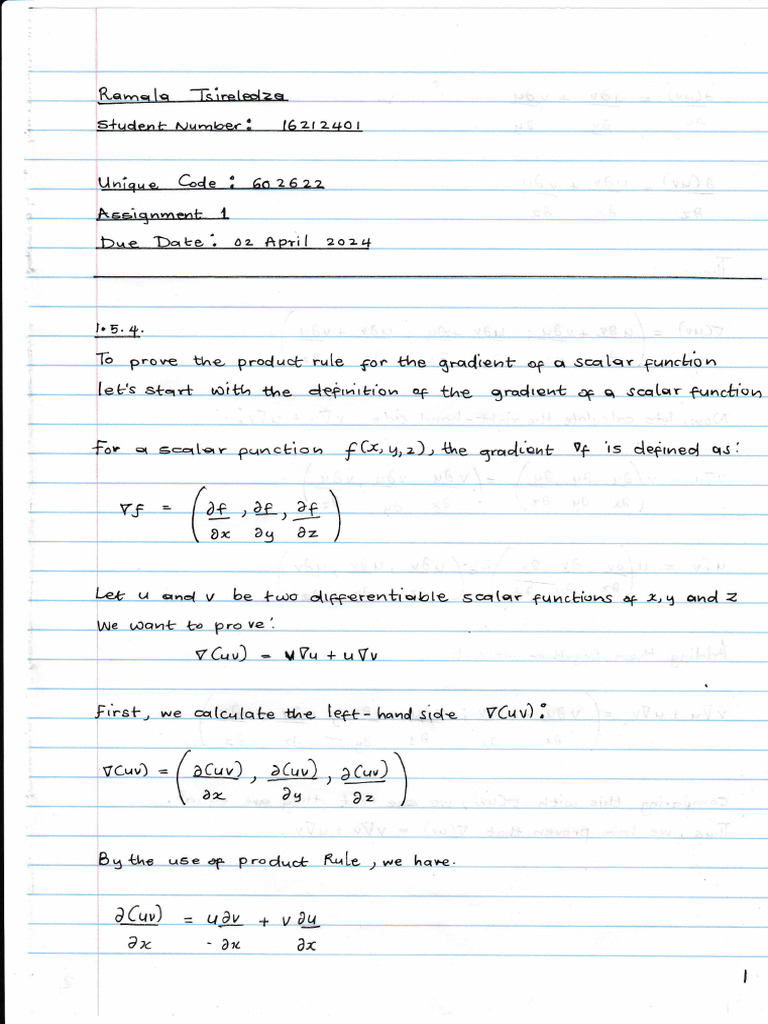 Ramala Tsireledza
Student Number: 16212401
Unique Code: 602622
Assignment 1
Due Date: 02 April 2024
1.5.4.
To prove the product rule for the gradient of a scalar function
let's start with the definition of the gradient of a scalar function
For a scalar function f(x,y,z), the gradient ∇f is defined as:
∇f = (∂f/∂x, ∂f/∂y, ∂f/∂z)
Let u and v be two differentiable scalar functions of x,y and z
We want to prove:
∇(uv) = v∇u + u∇v
First, we calculate the left-hand side ∇(uv):
∇(uv) = (∂(uv)/∂x, ∂(uv)/∂y, ∂(uv)/∂z)
By the use of product Rule, we have.
∂(uv)/∂x = u∂v/∂x + v∂u/∂x
1